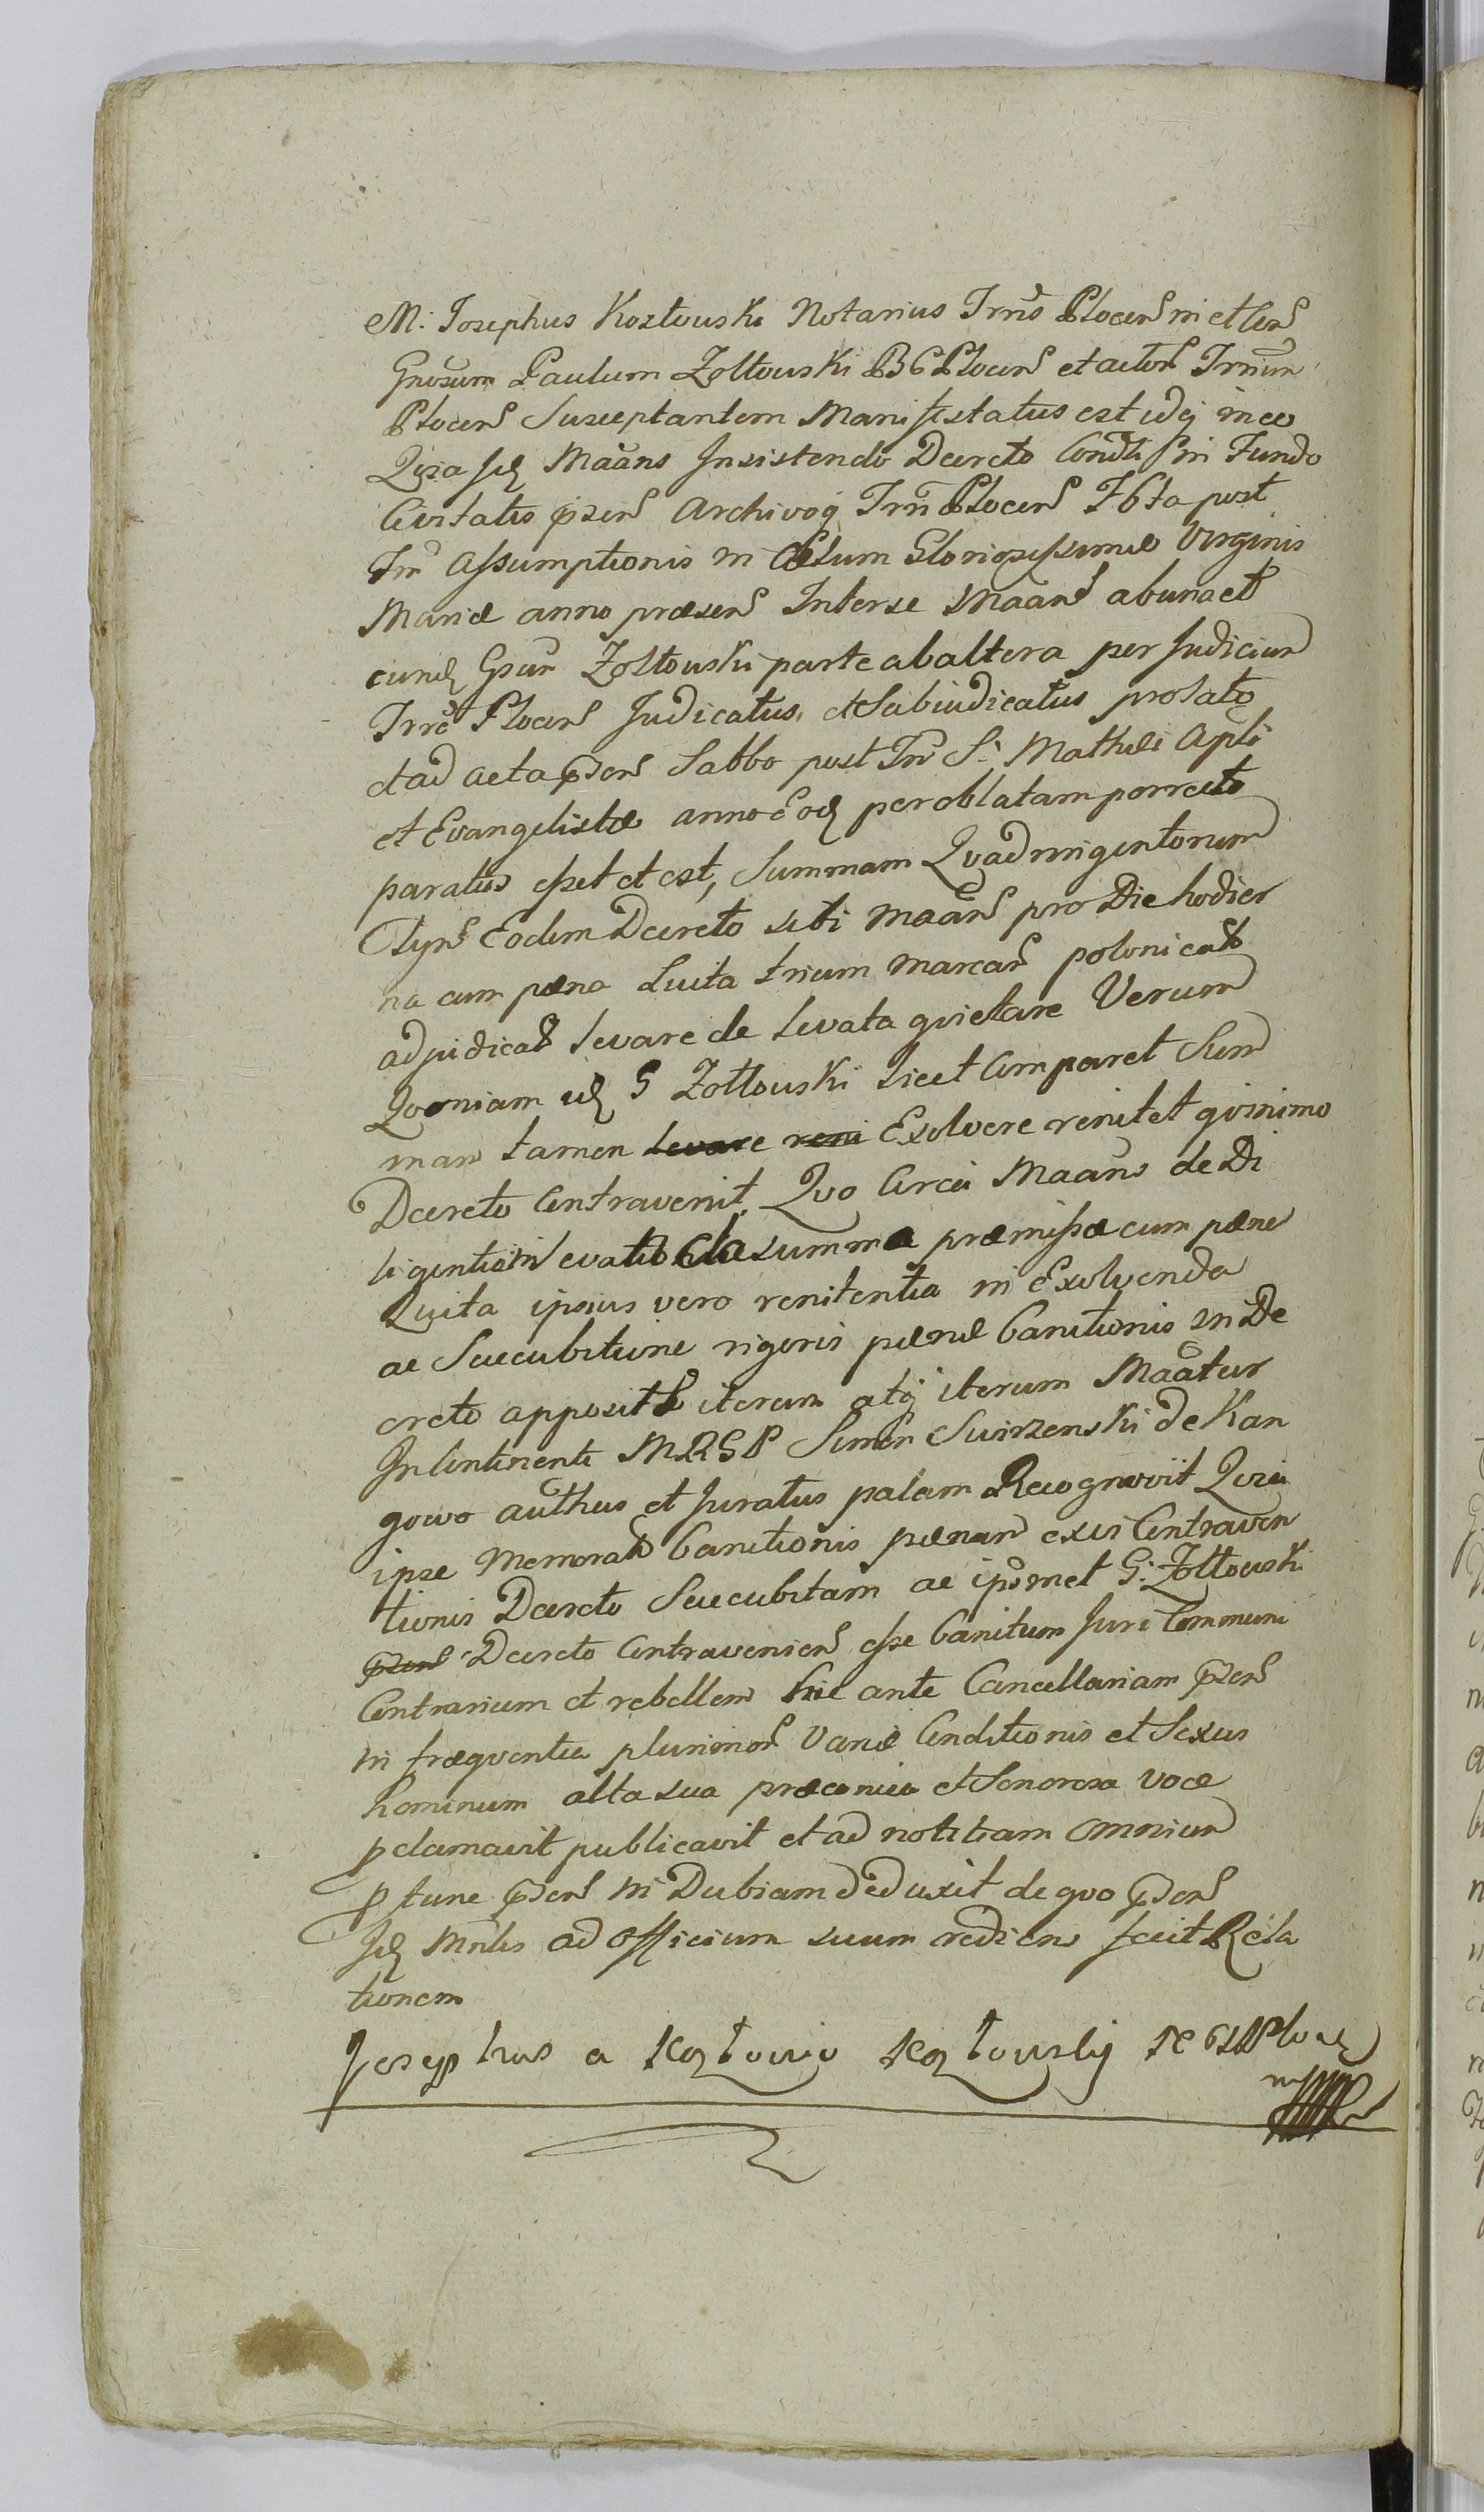 M. Josephus Kozłouski Notarius Trris Plocen in et con
Gnosum Paulum Zołtouski BG Plocen et actor Trrium
Plocen Susceptantem Manifestatus est idq in eo
Qvia Jd Maans Insistendo Decreto Condti in Fundo
Civitatis pzen Archivoq Trri Plocen Fta post
Fm Assumptionis in Cælum Gloriosissimæ Virginis
Mariæ anno præsen Interse Maan ab una et
eund Gsum Zołtouski parte ab altera per Judicium
Trre Plocen Judicatus, et Sabiudicatus prolato
et ad acta pzen Sabbo post Fm S. Mathæi Apli
et Evangelistæ anno Eod per oblatam porrecto
paratus esset et est, Summam Qvadringentorum
Flyn Eodem Decreto sibi Maan pro Die hodier
na cum pæna Luita trium marcar polonical
adjudicat levare de levata qvietare Verum
Qvoniam id G Zołtouski licet Comparet Sum
mam tamen levare reni Exolvere renitet qvinimo
Decreto Contravenit, Qvo Circa Maans de Di
ligentia in levatio summæ præmissæ cum pæne
Luita ipsius vero renitentia in Exolvenda
ac Succubitione rigoris pænæ Banitionis in De
creto apposit iterum atq iterum Maatur
In Continenti MRGP Simon Suirzenski de Kan
gowo authus et Juratus palam Recognovit Qvia
ipse Memorat Banitionis pænam ex vi Contraven
tionis Decreto Succubitam ac ipsmet G: Zołtouski
pzen Decreto Contravenien esse Banitum Juri Communi
Contrarium et rebellem hic ante Cancellariam pzen
in fræqventia plurimor Variæ Conditionis et Sexus
hominum alta sua præconica et Sonorosa voce
pclamavit publicavit et ad notitiam omnium
p tunc pzen in Dubiam deduxit de qvo pzen
Jd Mnlis ad Officium suum rediens fecit Rela
tionem
Josephus a Kozłowo Kozłowsky
mpp